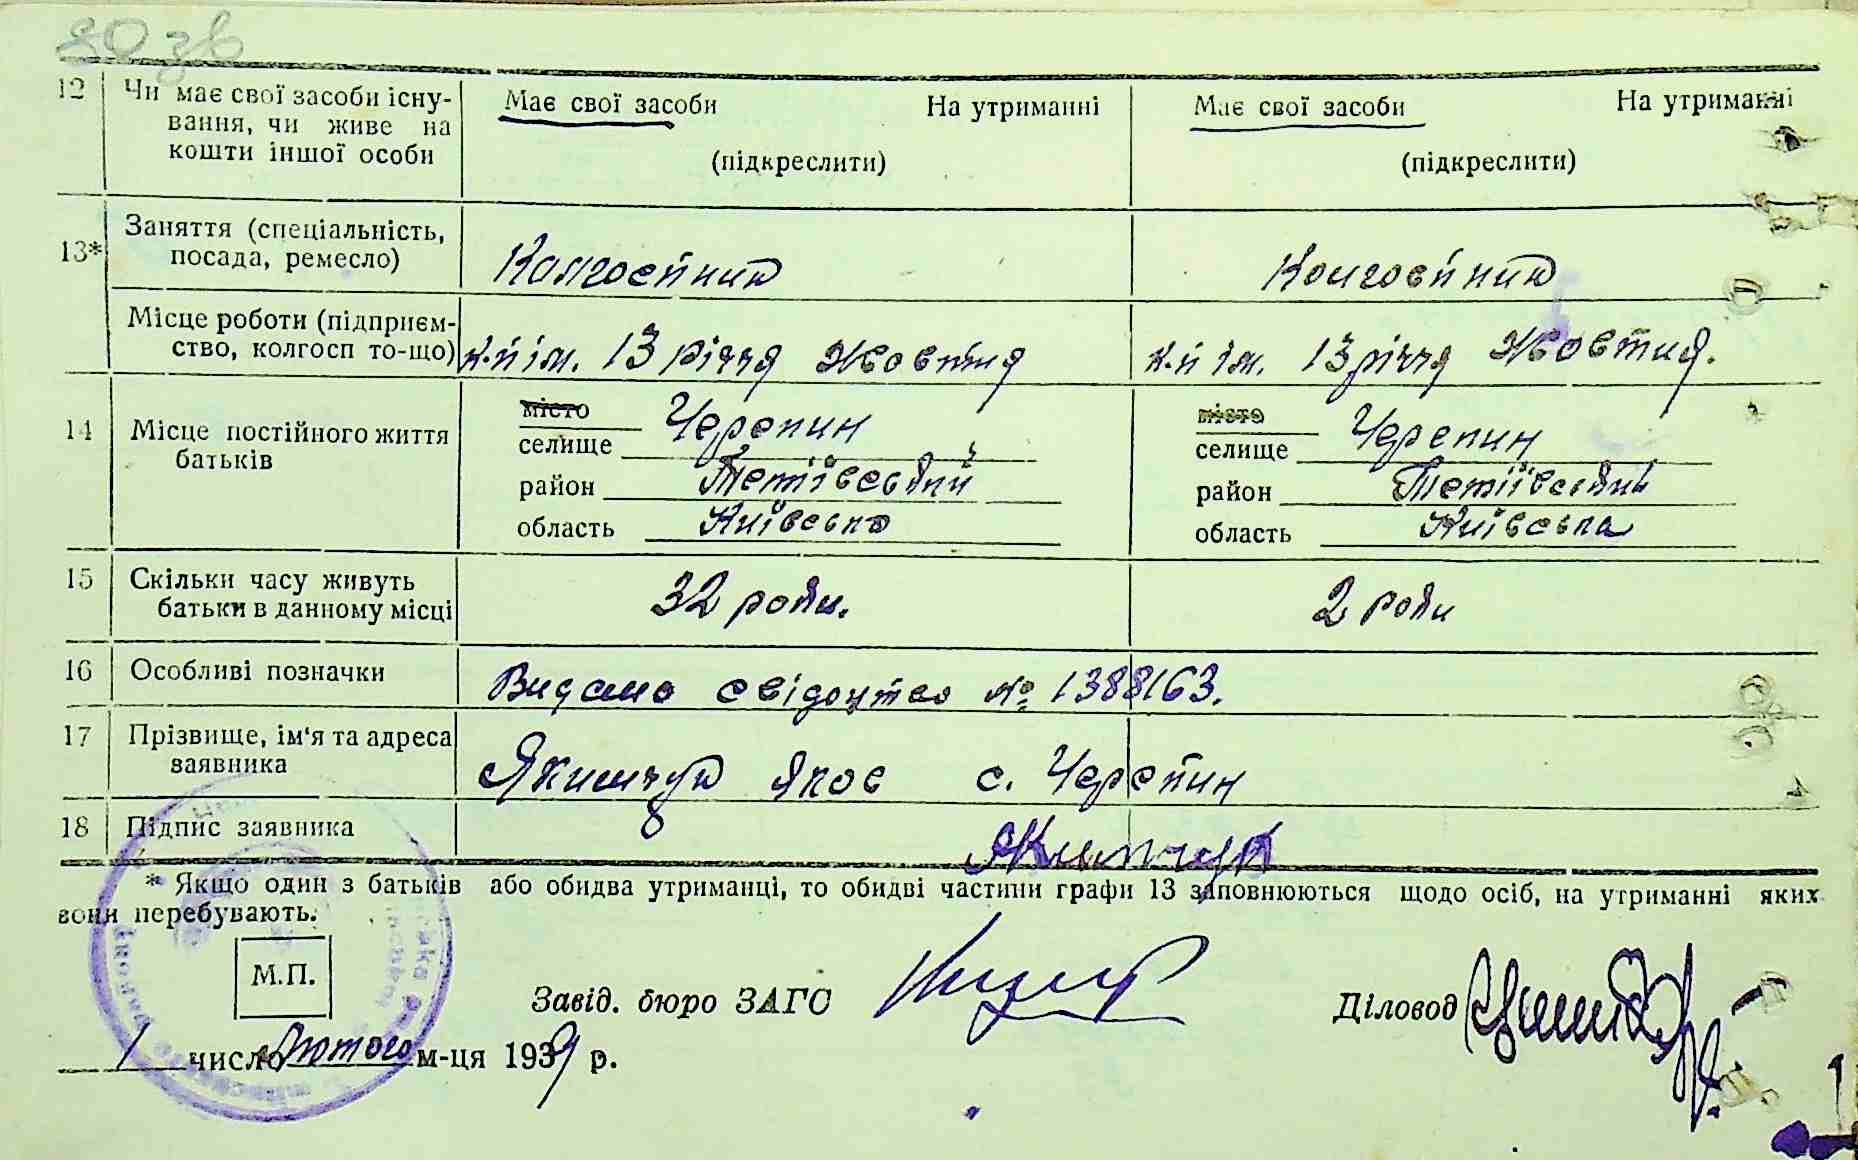 80 зв
12 Чи має свої засоби існу-
вання, чи живе на
кошти іншої особи
Має свої засоби На утриманні
(підкреслити)
Має свої засоби На утриманні
(підкреслити)
13* Заняття (спеціальність,
посада, ремесло)
Колгоспник
Колгоспник
Місце роботи (підприєм-
ство, колгосп то-що)
к-п ім. 13 річчя Жовтня
к-п ім. 13 річчя Жовтня.
14 Місце постійного життя
батьків
місто
селище Черепин
район Тетіївський
область Київська
місто
селище Черепин
район Тетіївський
область Київська
15 Скільки часу живуть
батьки в данному місці
32 роки.
2 роки
16 Особливі позначки
Видано свідоцтво № 1388163.
17 Прізвище, ім'я та адреса
заявника
Якимчук Яков с. Черепин
18 Підпис заявника
Якимчук
* Якщо один з батьків або обидва утриманці, то обидві частини графи 13 заповнюються щодо осіб, на утриманні яких
вони перебувають.
М.П.
Завід. бюро ЗАГС
Діловод
1 число Лютого м-ця 1939 р.